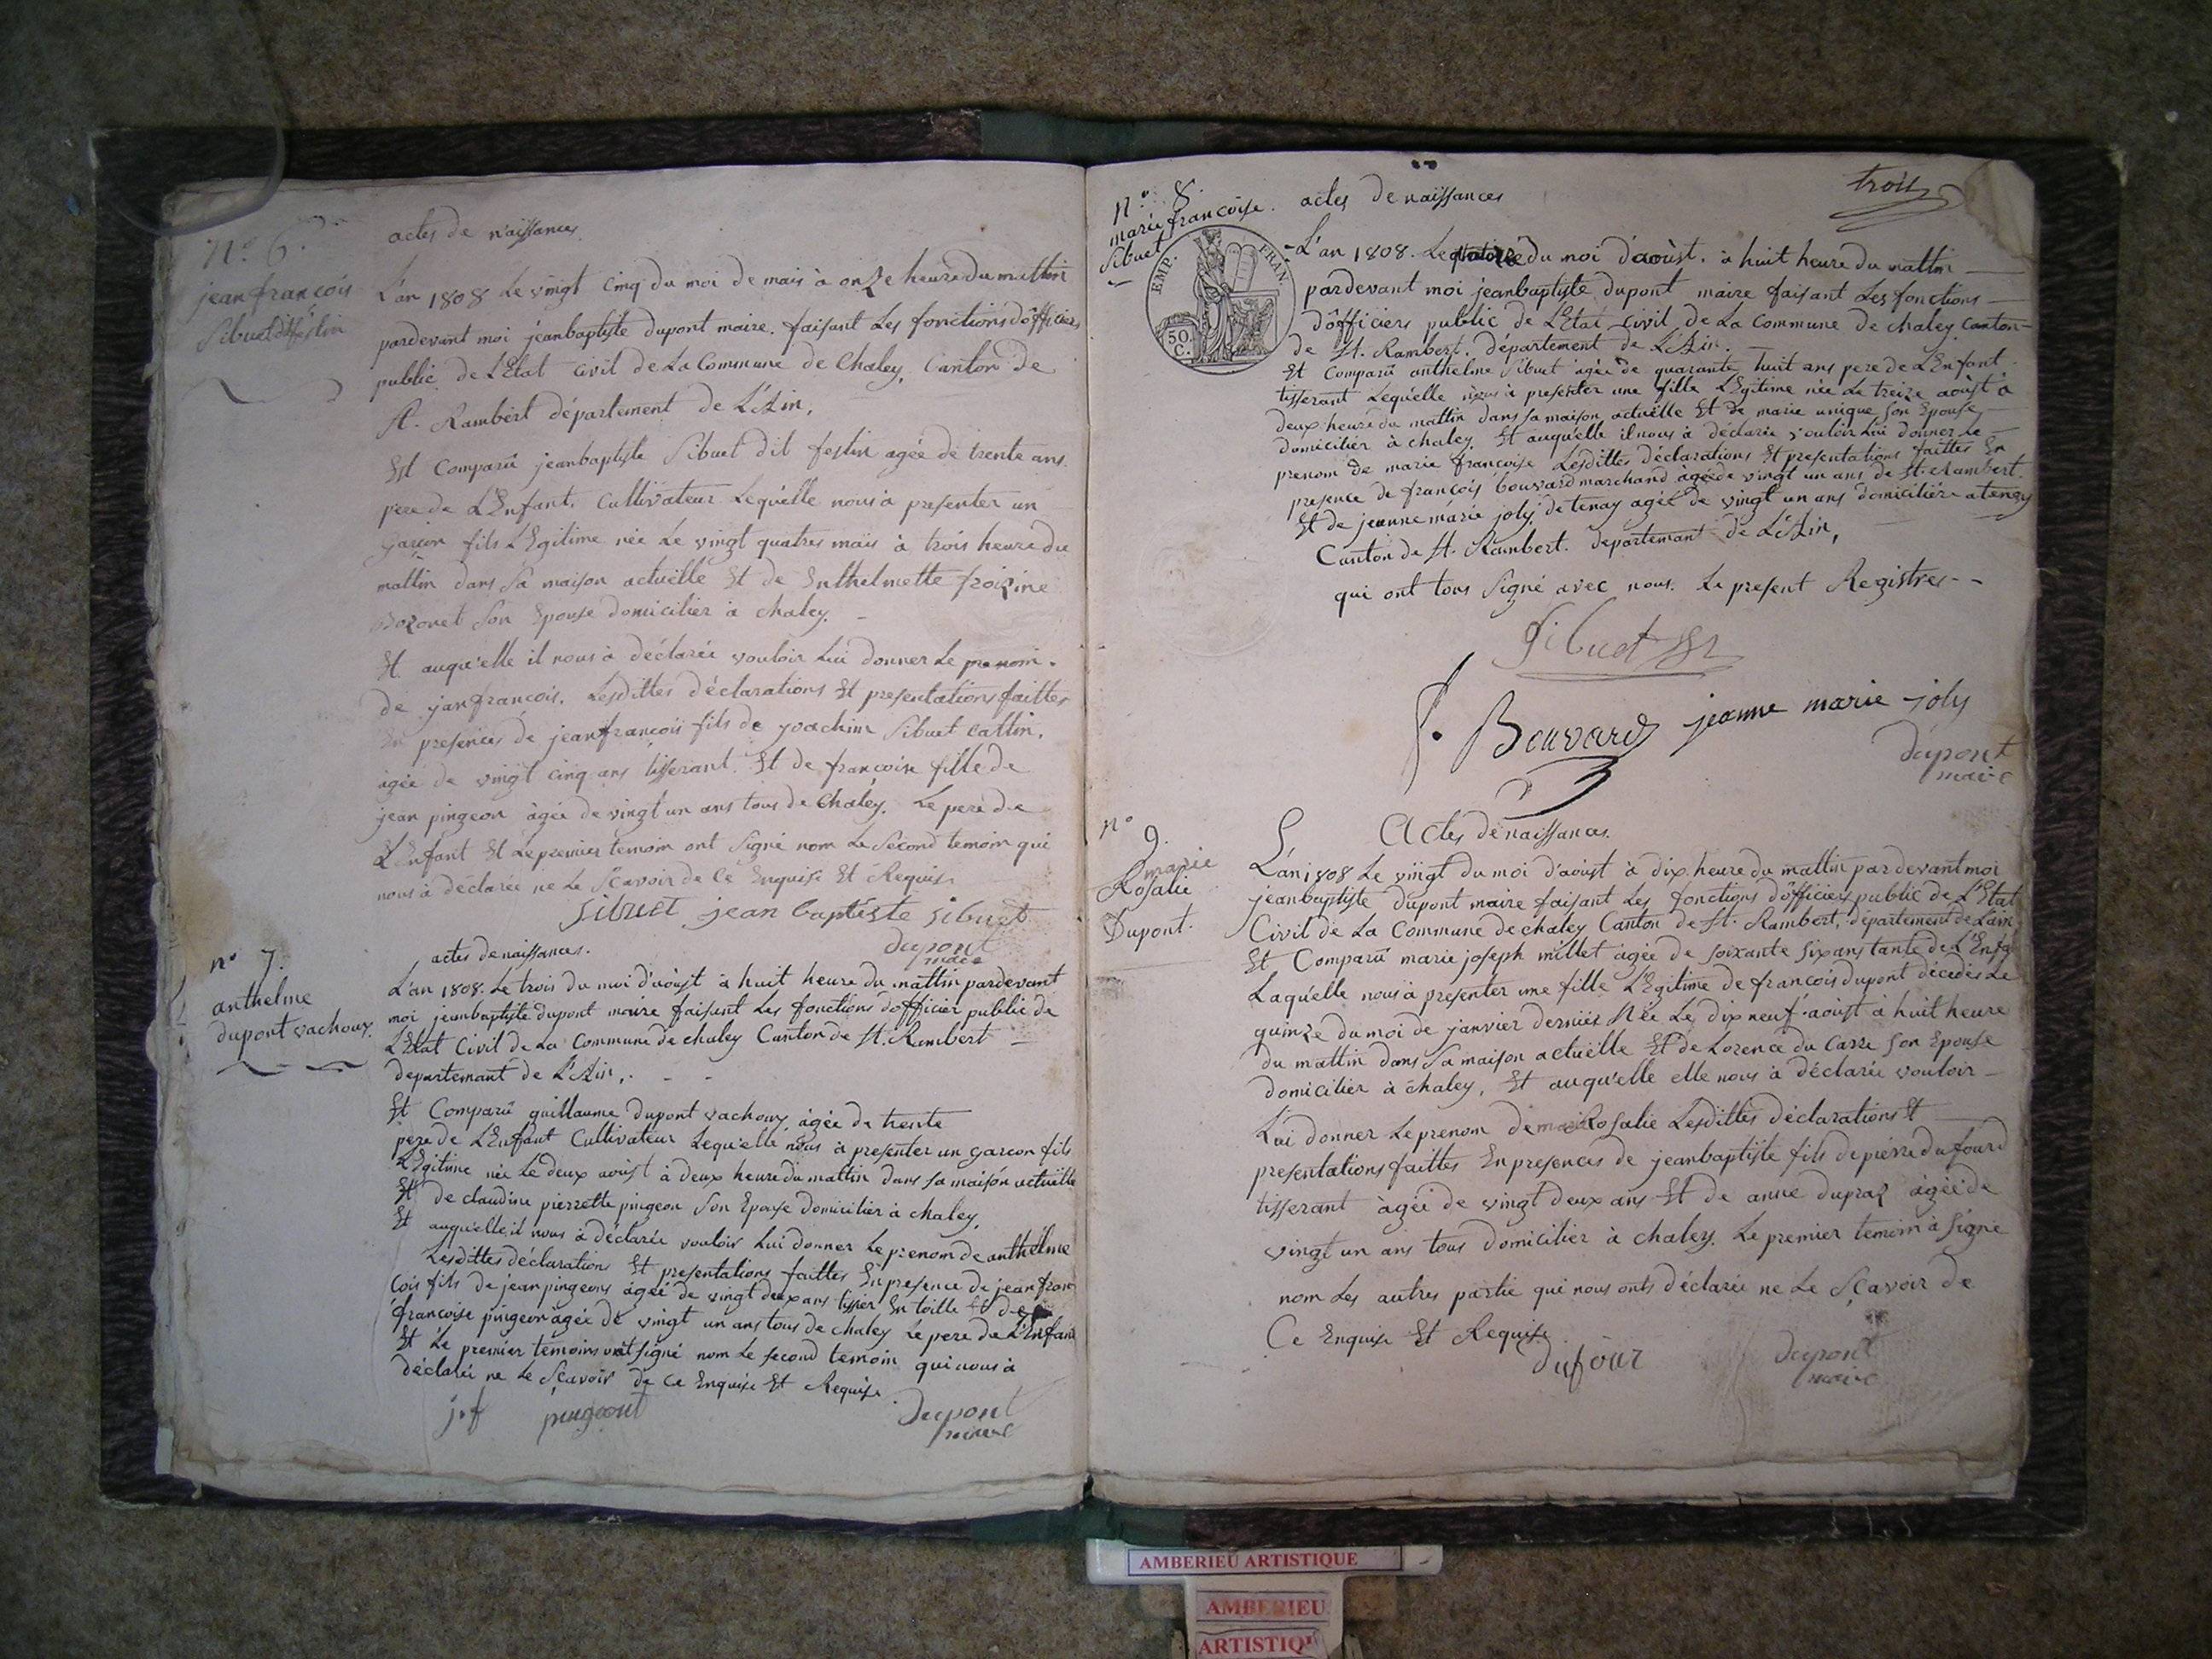 N.º 6.
jean françois
Sibuet dit festin
actes de naissances
L'an 1808 Le vingt cinq du moi de mais à onze heure du mattin
pardevant moi jeanbaptiste dupont maire. faisant Les fonctions d'officiers
public de L'Etat civil de La Commune de Chaley, Canton de
St. Rambert département de L'Ain,
Est Comparû jeanbaptiste Sibuet dit festin agée de trente ans
pere de L'Enfant, Cultivateur Lequ'elle nous à presenter un
garçon fils L'Egitime née Le vingt quatres mais à trois heure du
mattin dans Sa maison actuëlle Et de Enthelmette froizine
Bozonet Son Epouse domicilier à chaley.
Et auqu'elle il nous à déclarée vouloir Lui donner Le prenom.
de jan françois. Lesdittes déclarations Et presentations faittes
En presences de jeanfrançois fils de joachim Sibuet Cattin,
agée de vingt cinq ans tisserant. Et de francoise fille de
jean pingeon àgée de vingt un ans tous de Chaley. Le pere de
L'Enfant Et Le premier temoin ont Signé nom Le Second temoin qui
nous à déclarée ne Le Sçavoir de Ce Enquise Et Requise
Sibuet jean baptiste sibuet
dupont
maire
nº 7.
anthelme
dupont vachoux.
actes de naissances.
L'an 1808. Le trois du moi d'aoùst à huit heure du mattin pardevant
moi jeanbaptiste dupont maire faisant Les fonctions d'officier public de
L'Etat Civil de La Commune de chaley Canton de St. Rambert
departemant de L'Ain,.
Et Comparû guillaume dupont vachoux, àgée de trente
pere de L'Enfant Cultivateur Lequ'elle nous à presenter un garcon fils
L'Egitime née Le deux aoùst à deux heure du mattin dans Sa maison actuëlle
Et de claudine pierrette pingeon Son Epouse domicilier à chaley,
Et auqu'elle, il nous à déclarée vouloir Lui donner Le prenom de anthélme
Lesdittes déclarations Et presentations faittes En presence de jeanfran
cois fils de jean pingeons àgée de vingt deux ans tissier En toille Et de
francoise pingeon àgée de vingt un ans tous de chaley Le pere de L'Enfant
Et Le premier temoins ont signé nom Le second temoin qui nous à
déclarée ne Le Sçavoir de Ce Enquise Et Requise
j. f pingeont
Dupont
maire
trois
N.º 8.
marie françoise
Sibuet
actes de naissances
EMP. FRAN.
50 C.
L'an 1808. Le du moi d'aoùst. à huit heure du mattin
pardevant moi jeanbaptiste dupont maire faisant Les fonctions
d'officiers public de L'Etat civil de La Commune de chaley Canton
de St. Rambert. département de L'Ain.
Et Comparû anthelme Sibuet agée de quarante huit ans pere de L'Enfant
tisserant Lequ'elle nous à presenter une fille L'Egitime née Le treize aoùst à
deux heure du mattin dans sa maison actuëlle Et de marie unique Son Epouse
domicilier à chaley. Et auqu'elle il nous à déclarée vouloir Lui donner Le
prenom de marie francoise Lesdittes déclarations Et presentations faittes En
presence de françois bouvard marchand àgée de vingt un ans de St. Rambert.
Et de jeanne marie joly de tenay agée de vingt un ans domiciliére a tenay
Canton de St. Rambert. departemant de L'Ain,
qui ont tous Signé avec nous. Le present Registres
Sibuet
f. Bouvard jeanne marie joly
dupont
maire
nº 9.
marie
Rosalie
Dupont.
Actes de naissances.
L'an 1808 Le vingt du moi d'aoùst à dix heure du mattin par devant moi
jeanbaptiste dupont maire faisant Les fonctions d'officiers public de L'Etat
Civil de La Commune de chaley Canton de St. Rambert, département de L'ain
Et Comparû marie joseph millet agée de soixante six ans tante de L'Enfa
Laqu'elle nous à presenter une fille L'Egitime de francois dupont décédés Le
quinze du moi de janvier derniés Née Le dix neuf aoùst à huit heure
du mattin dans Sa maison actuëlle Et de Lorence du Carre Son Epouse
domicilier à chaley, Et auqu'elle elle nous à déclarée vouloir
Lui donner Le prenom de marie Rosalie Lesdittes déclarations Et
presentations faittes En presences de jeanbaptiste fils de pierre dufourd
tisserant àgée de vingt deux ans Et de anne dupraz àgée de
vingt un ans tous domicilier à chaley. Le premier temoin à Signé
nom Les autres partie qui nous onts déclarée ne Le Sçavoir de
Ce Enquise Et Requise
dufour
dupont
maire
AMBERIEU ARTISTIQUE
AMBERIEU
ARTISTIQU